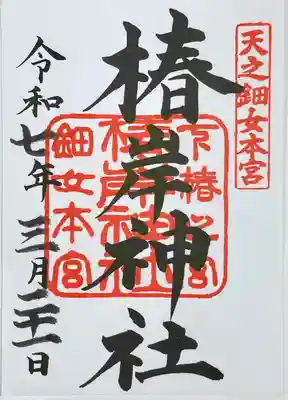 天之鈿女本宮
椿岸神社
椿岸神社
鈿女本宮
令和七年三月二十一日